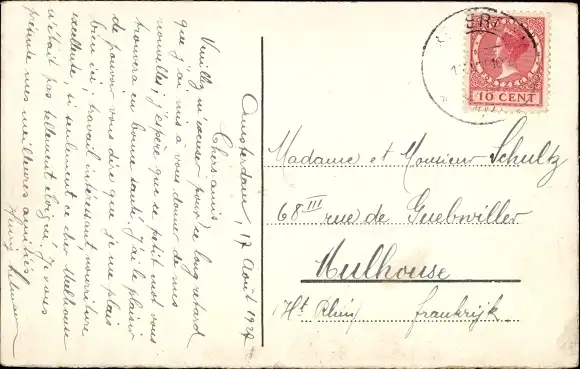 Amsterdam, 17 Août 1927
Chers amis
Veuillez m'excuser pour ce long retard
que j'ai mis à vous donner de mes
nouvelles, j'espère que ce petit mot vous
trouvera en bonne santé. J'ai le plaisir
de pouvoir vous dire que je me plais
bien ici, travail intéressant, nourriture
excellente, si seulement ce cher Mulhouse
n'était pas tellement éloigné. Je vous
présente mes meilleures amitiés
10 CENT
Madame et Monsieur Schultz
68 III rue de Guebwiller
Mulhouse
Ht Rhin Frankrijk